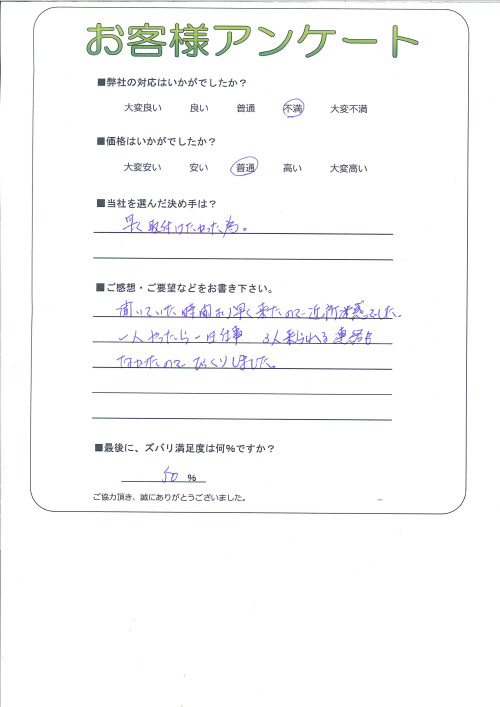 お客様アンケート
■弊社の対応はいかがでしたか？
大変良い 良い 普通 不満 大変不満
■価格はいかがでしたか？
大変安い 安い 普通 高い 大変高い
■当社を選んだ決め手は？
早く取付けたかった為。
■ご感想・ご要望などをお書き下さい。
聞いていた時間より早く来たので近所迷惑でした。
一人やったら一日仕事 3人来られる連絡も
なかったのでびっくりしました。
■最後に、ズバリ満足度は何％ですか？
50 ％
ご協力頂き、誠にありがとうございました。